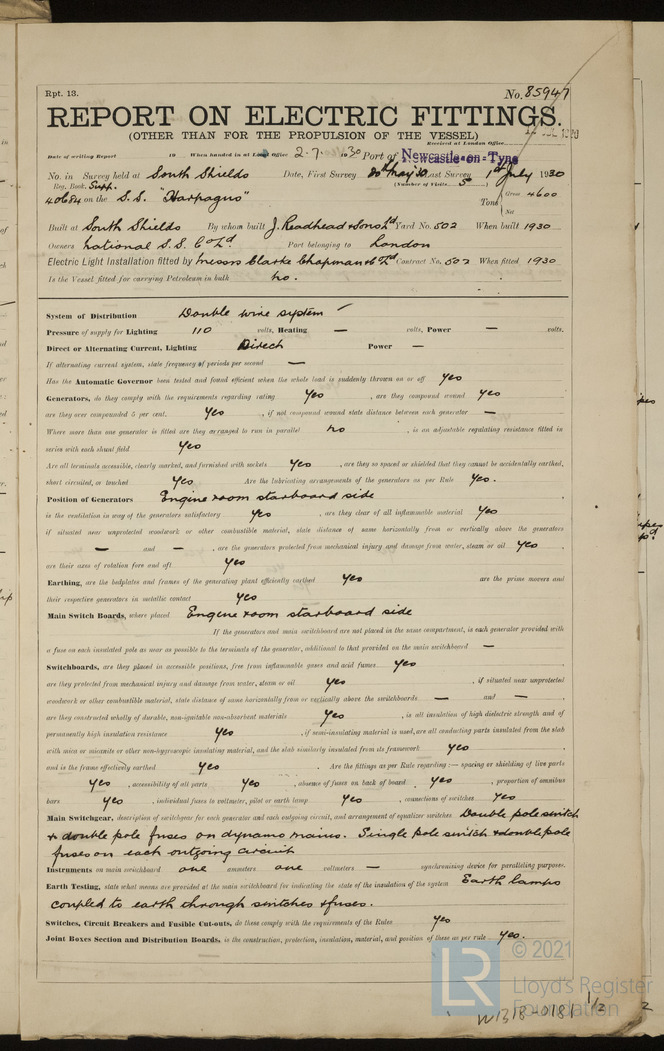 Rpt. 13.
No. 85947
REPORT ON ELECTRIC FITTINGS.
(OTHER THAN FOR THE PROPULSION OF THE VESSEL)
Received at London Office
Date of writing Report 19 When handed in at Local Office 2.7. 1930 Port of Newcastle-on-Tyne
No. in Survey held at South Shields Date, First Survey 20th May 30 Last Survey 1st July 1930
Reg. Book. Supp. (Number of Visits 5)
40684 on the S.S. "Harpagus" Tons Gross 4600
Net
Built at South Shields By whom built J. Readhead & Sons Ld Yard No. 502 When built 1930
Owners National S.S. Co Ld Port belonging to London
Electric Light Installation fitted by Messrs Clarke Chapman & Co Ld Contract No. 502 When fitted 1930
Is the Vessel fitted for carrying Petroleum in bulk no.
System of Distribution Double wire system
Pressure of supply for Lighting 110 volts, Heating — volts, Power — volts.
Direct or Alternating Current, Lighting Direct Power —
If alternating current system, state frequency of periods per second —
Has the Automatic Governor been tested and found efficient when the whole load is suddenly thrown on or off Yes
Generators, do they comply with the requirements regarding rating Yes , are they compound wound Yes
are they over compounded 5 per cent. Yes , if not compound wound state distance between each generator —
Where more than one generator is fitted are they arranged to run in parallel no , is an adjustable regulating resistance fitted in
series with each shunt field Yes
Are all terminals accessible, clearly marked, and furnished with sockets Yes , are they so spaced or shielded that they cannot be accidentally earthed,
short circuited, or touched Yes Are the lubricating arrangements of the generators as per Rule Yes.
Position of Generators Engine room starboard side
is the ventilation in way of the generators satisfactory Yes , are they clear of all inflammable material Yes
if situated near unprotected woodwork or other combustible material, state distance of same horizontally from or vertically above the generators
— and — , are the generators protected from mechanical injury and damage from water, steam or oil Yes ,
are their axes of rotation fore and aft Yes
Earthing, are the bedplates and frames of the generating plant efficiently earthed Yes are the prime movers and
their respective generators in metallic contact Yes
Main Switch Boards, where placed Engine room starboard side
If the generators and main switchboard are not placed in the same compartment, is each generator provided with
a fuse on each insulated pole as near as possible to the terminals of the generator, additional to that provided on the main switchboard —
Switchboards, are they placed in accessible positions, free from inflammable gases and acid fumes Yes ,
are they protected from mechanical injury and damage from water, steam or oil Yes , if situated near unprotected
woodwork or other combustible material, state distance of same horizontally from or vertically above the switchboards — and — ,
are they constructed wholly of durable, non-ignitable non-absorbent materials Yes , is all insulation of high dielectric strength and of
permanently high insulation resistance Yes , if semi-insulating material is used, are all conducting parts insulated from the slab
with mica or micanite or other non-hygroscopic insulating material, and the slab similarly insulated from its framework Yes ,
and is the frame effectively earthed Yes . Are the fittings as per Rule regarding :— spacing or shielding of live parts
Yes , accessibility of all parts Yes , absence of fuses on back of board Yes , proportion of omnibus
bars Yes , individual fuses to voltmeter, pilot or earth lamp Yes , connections of switches Yes
Main Switchgear, description of switchgear for each generator and each outgoing circuit, and arrangement of equalizer switches Double pole switch
& double pole fuses on dynamo mains. Single pole switch & double pole
fuses on each outgoing circuit
Instruments on main switchboard one ammeters one voltmeters — synchronising device for paralleling purposes.
Earth Testing, state what means are provided at the main switchboard for indicating the state of the insulation of the system Earth lamps
coupled to earth through switches & fuses.
Switches, Circuit Breakers and Fusible Cut-outs, do these comply with the requirements of the Rules Yes
Joint Boxes Section and Distribution Boards, is the construction, protection, insulation, material, and position of these as per rule Yes.
© 2021
LR
Lloyd's Register
Foundation
W1318-0181 1/2